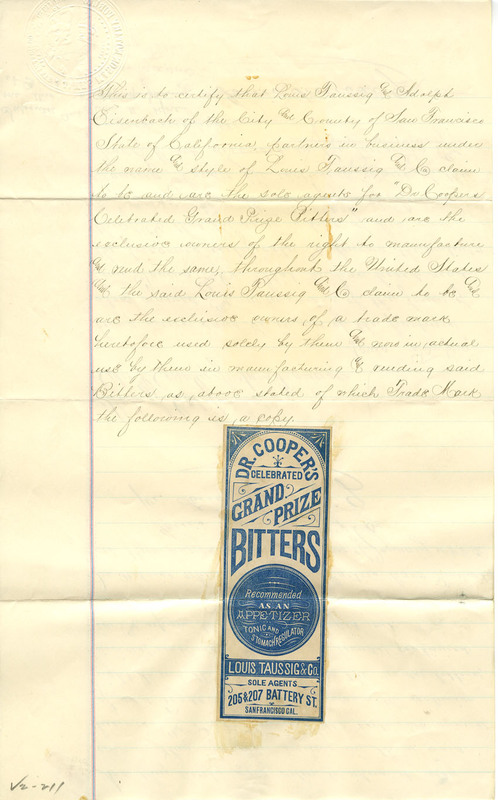 This is to certify that Louis Taussig & Adolph
Eisenbach of the City & County of San Francisco
State of California, partners in business under
the name & style of Louis Taussig & Co claim
to be and are the sole agents for "Dr Coopers
Celebrated Grand Prize Bitters" and are the
exclusive owners of the right to manufacture
& vend the same, throughout the United States
& the said Louis Taussig & Co claim to be &
are the exclusive owners of a trade mark
heretofore used solely by them & now in actual
use by them in manufacturing & vending said
Bitters as above stated of which Trade Mark
the following is a copy.
DR. COOPER'S
CELEBRATED
GRAND PRIZE
BITTERS
Recommended
AS AN
APPETIZER
TONIC AND
STOMACH REGULATOR
LOUIS TAUSSIG & Co.
SOLE AGENTS
205 & 207 BATTERY ST.
SAN FRANCISCO CAL.
V2-211